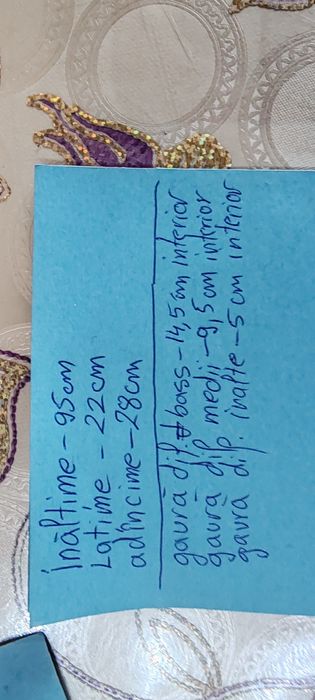 Înălțime - 95cm
Lațime - 22cm
adîncime - 28cm
gaură dif. bass - 14,5 cm interior
gaură dif. medii - 9,5 cm interior
gaură dif. inalte - 5 cm interior